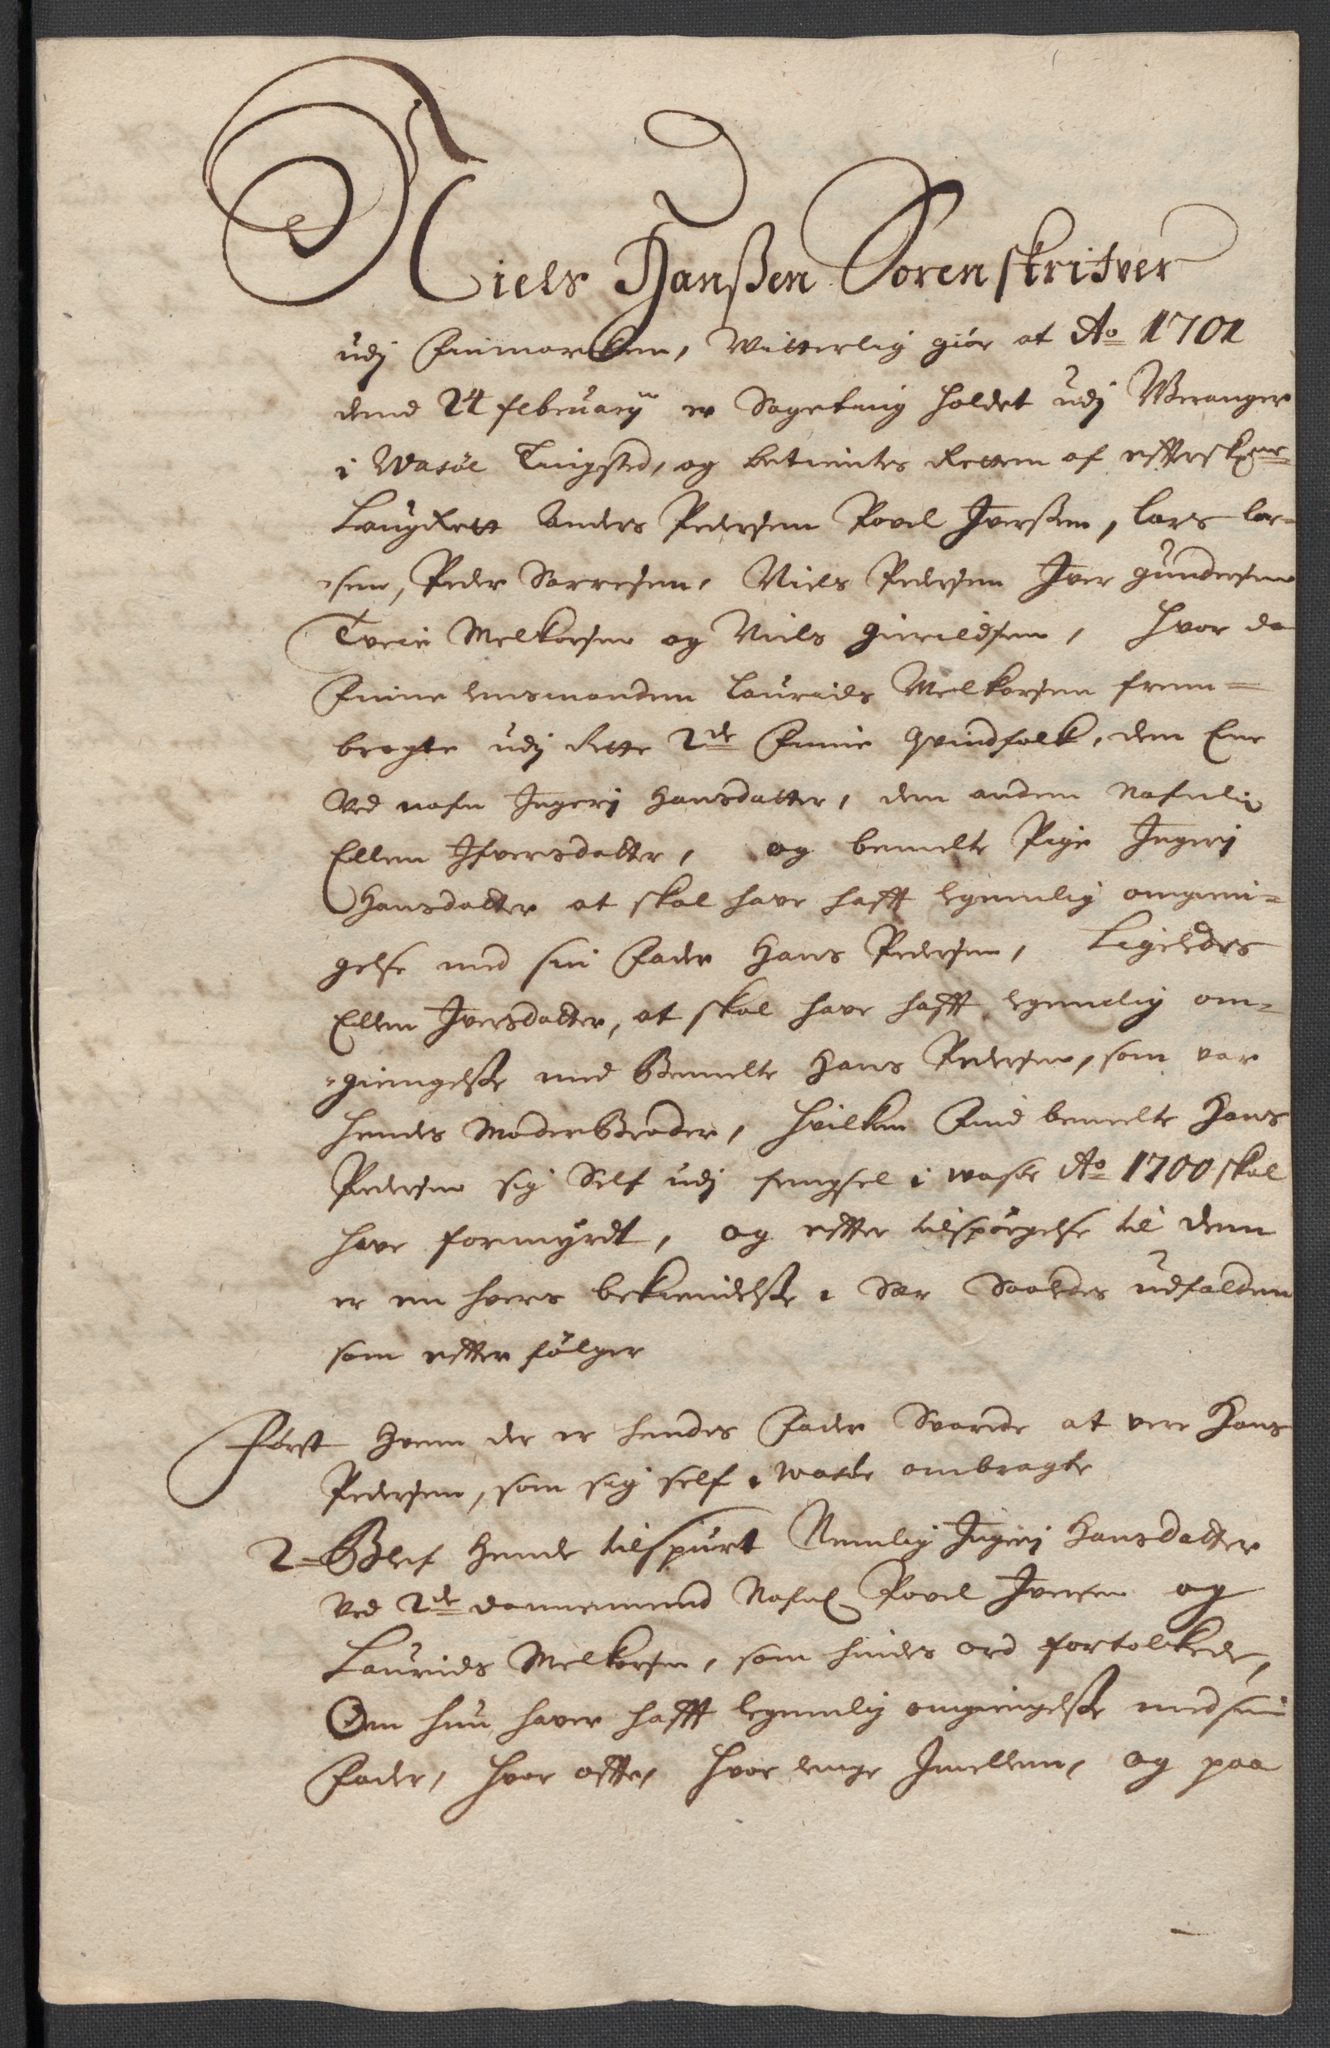 Niels Hanßen Sorenskrifver
udj Finmarken, Witterlig giør at Ao 1701
dend 24 february er Sageting holdet udj Waranger
i Wasøe Tingsted, og betientes Retten af effterskr:
Laugrett Anders Pedersen Povel Iverßen, Lars Lar-
-sen, Peder Sarresen, Niels Pedersen Iver Gundersen
Melkersen og Niels hvor da
Finne lensmanden Laurids Melkersen frem-
bragte udj Rette 2de Finne Qvindfolk, den Ene
Ved nafn Ingeri Hansdatter, den anden Nafnlig
Ellen Ifversdatter, og bemelte Pige Ingeri
Hansdatter at skal have hafft legemlig omgien-
gelse med sin Fader Hans Pedersen, Ligeledes
Ellen Iversdatter, at skal have hafft legemlig om-
-giengelße med Bemelte Hans Pedersen, som var
hendes Moder Broder, hvilken Find bemelte Hans
Pedersen sig Self udj fengsel i Wasøe Ao 1700 skal
have formyrdt, og effter tilspørgelse til dem
er en hvers bekiendelße i Sær Saaledes udfalden
som effter følger
Først Hvem der er hendes Fader Svarede at vere Hans
Pedersen, som sig self i Wasøe ombragte
2- Blef Hende tilspurt Nemlig Ingeri Hansdatter
Ved 2de dannemend Nafnl Povel Iversen og
Laurids Melkersen, som hindes ord fortolkede,
Om hun haver hafft legemlig omgiengelße med sin
Fader, hvor offte, hvor lenge Imellem, og paa